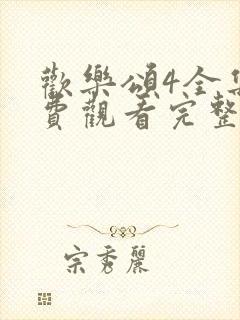 歡樂頌4全集
費觀看完整
宗秀麗